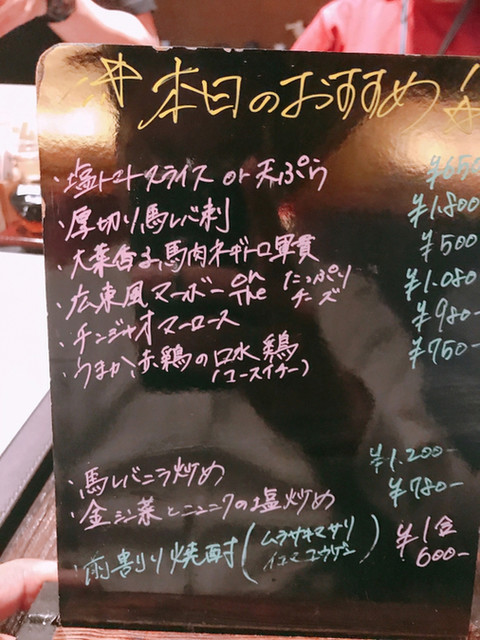 ☆本日のおすすめ☆
・塩トマトスライス or 天ぷら ¥650
・厚切り馬レバ刺 ¥1.800
・大葉香る馬肉ネギトロ軍貫 ¥500
・広東風マーボー on The たっぷりチーズ ¥1.080
・チンジャオマーロース ¥980-
・うまか赤鶏の口水鶏 ¥750-
(ヨースイチー)
・馬レバニラ炒め ¥1.200-
・金針菜とニンニクの塩炒め ¥780-
・前割り焼酎(ムラサキマサリ ¥1合 600-